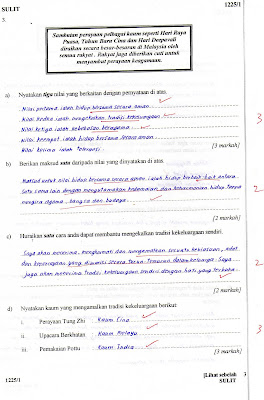 SULIT
1225/1
3.
Sambutan perayaan pelbagai kaum seperti Hari Raya
Puasa, Tahun Baru Cina dan Hari Deepavali
diraikan secara besar-besaran di Malaysia oleh
semua rakyat. Rakyat juga diberikan cuti untuk
menyambut perayaan keagamaan.
a) Nyatakan tiga nilai yang berkaitan dengan pernyataan di atas.
Nilai pertama ialah hidup bersama secara aman.
Nilai kedua ialah mengekalkan tradisi kekeluargaan
Nilai ketiga ialah kebebasan beragama
Nilai keempat ialah hidup bersama secara aman
Nilai kelima ialah toleransi.
3
[3 markah]
b) Berikan maksud satu daripada nilai yang dinyatakan di atas.
Maksud untuk nilai hidup bersama secara aman ialah hidup berbaik-baik antara
satu sama lain dengan mengutamakan kedamaian dan keharmonian hidup tanpa
mengira agama, bangsa dan budaya.
2
[2 markah]
c) Huraikan satu cara anda dapat membantu mengekalkan tradisi kekeluargaan sendiri.
Saya akan menerima, menghormati dan mengamalkan sesuatu kebiasaan, adat
dan kepercayaan yang diwarisi secara turun temurun dalam keluarga. Saya
juga akan menerima tradisi kekeluargaan sendiri dengan hati yang terbuka.
2
[2 markah]
d) Nyatakan kaum yang mengamalkan tradisi kekeluargaan berikut:
i. Perayaan Tung Zhi : Kaum Cina
ii. Upacara Berkhatan : Kaum Melayu
iii. Pemakaian Pottu : Kaum India
3
[3 markah]
1225/1
[Lihat sebelah 3
SULIT